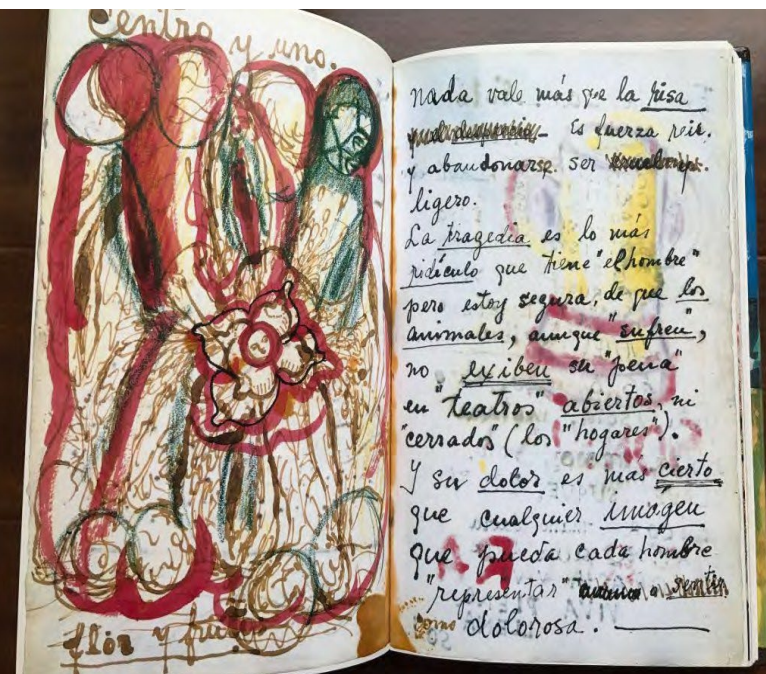 Centro y uno.
flor y fruto
nada vale más que la risa
Es fuerza reir.
y abandonarse. ser
ligero.
La tragedia es lo más
ridículo que tiene "el hombre"
pero estoy segura, de que los
animales, aunque "sufren",
no exiben su "pena"
en "teatros" abiertos, ni
"cerrados" (los "hogares").
Y su dolor es mas cierto
que cualquier imagen
que pueda cada hombre
"representar" o sentir
como dolorosa.